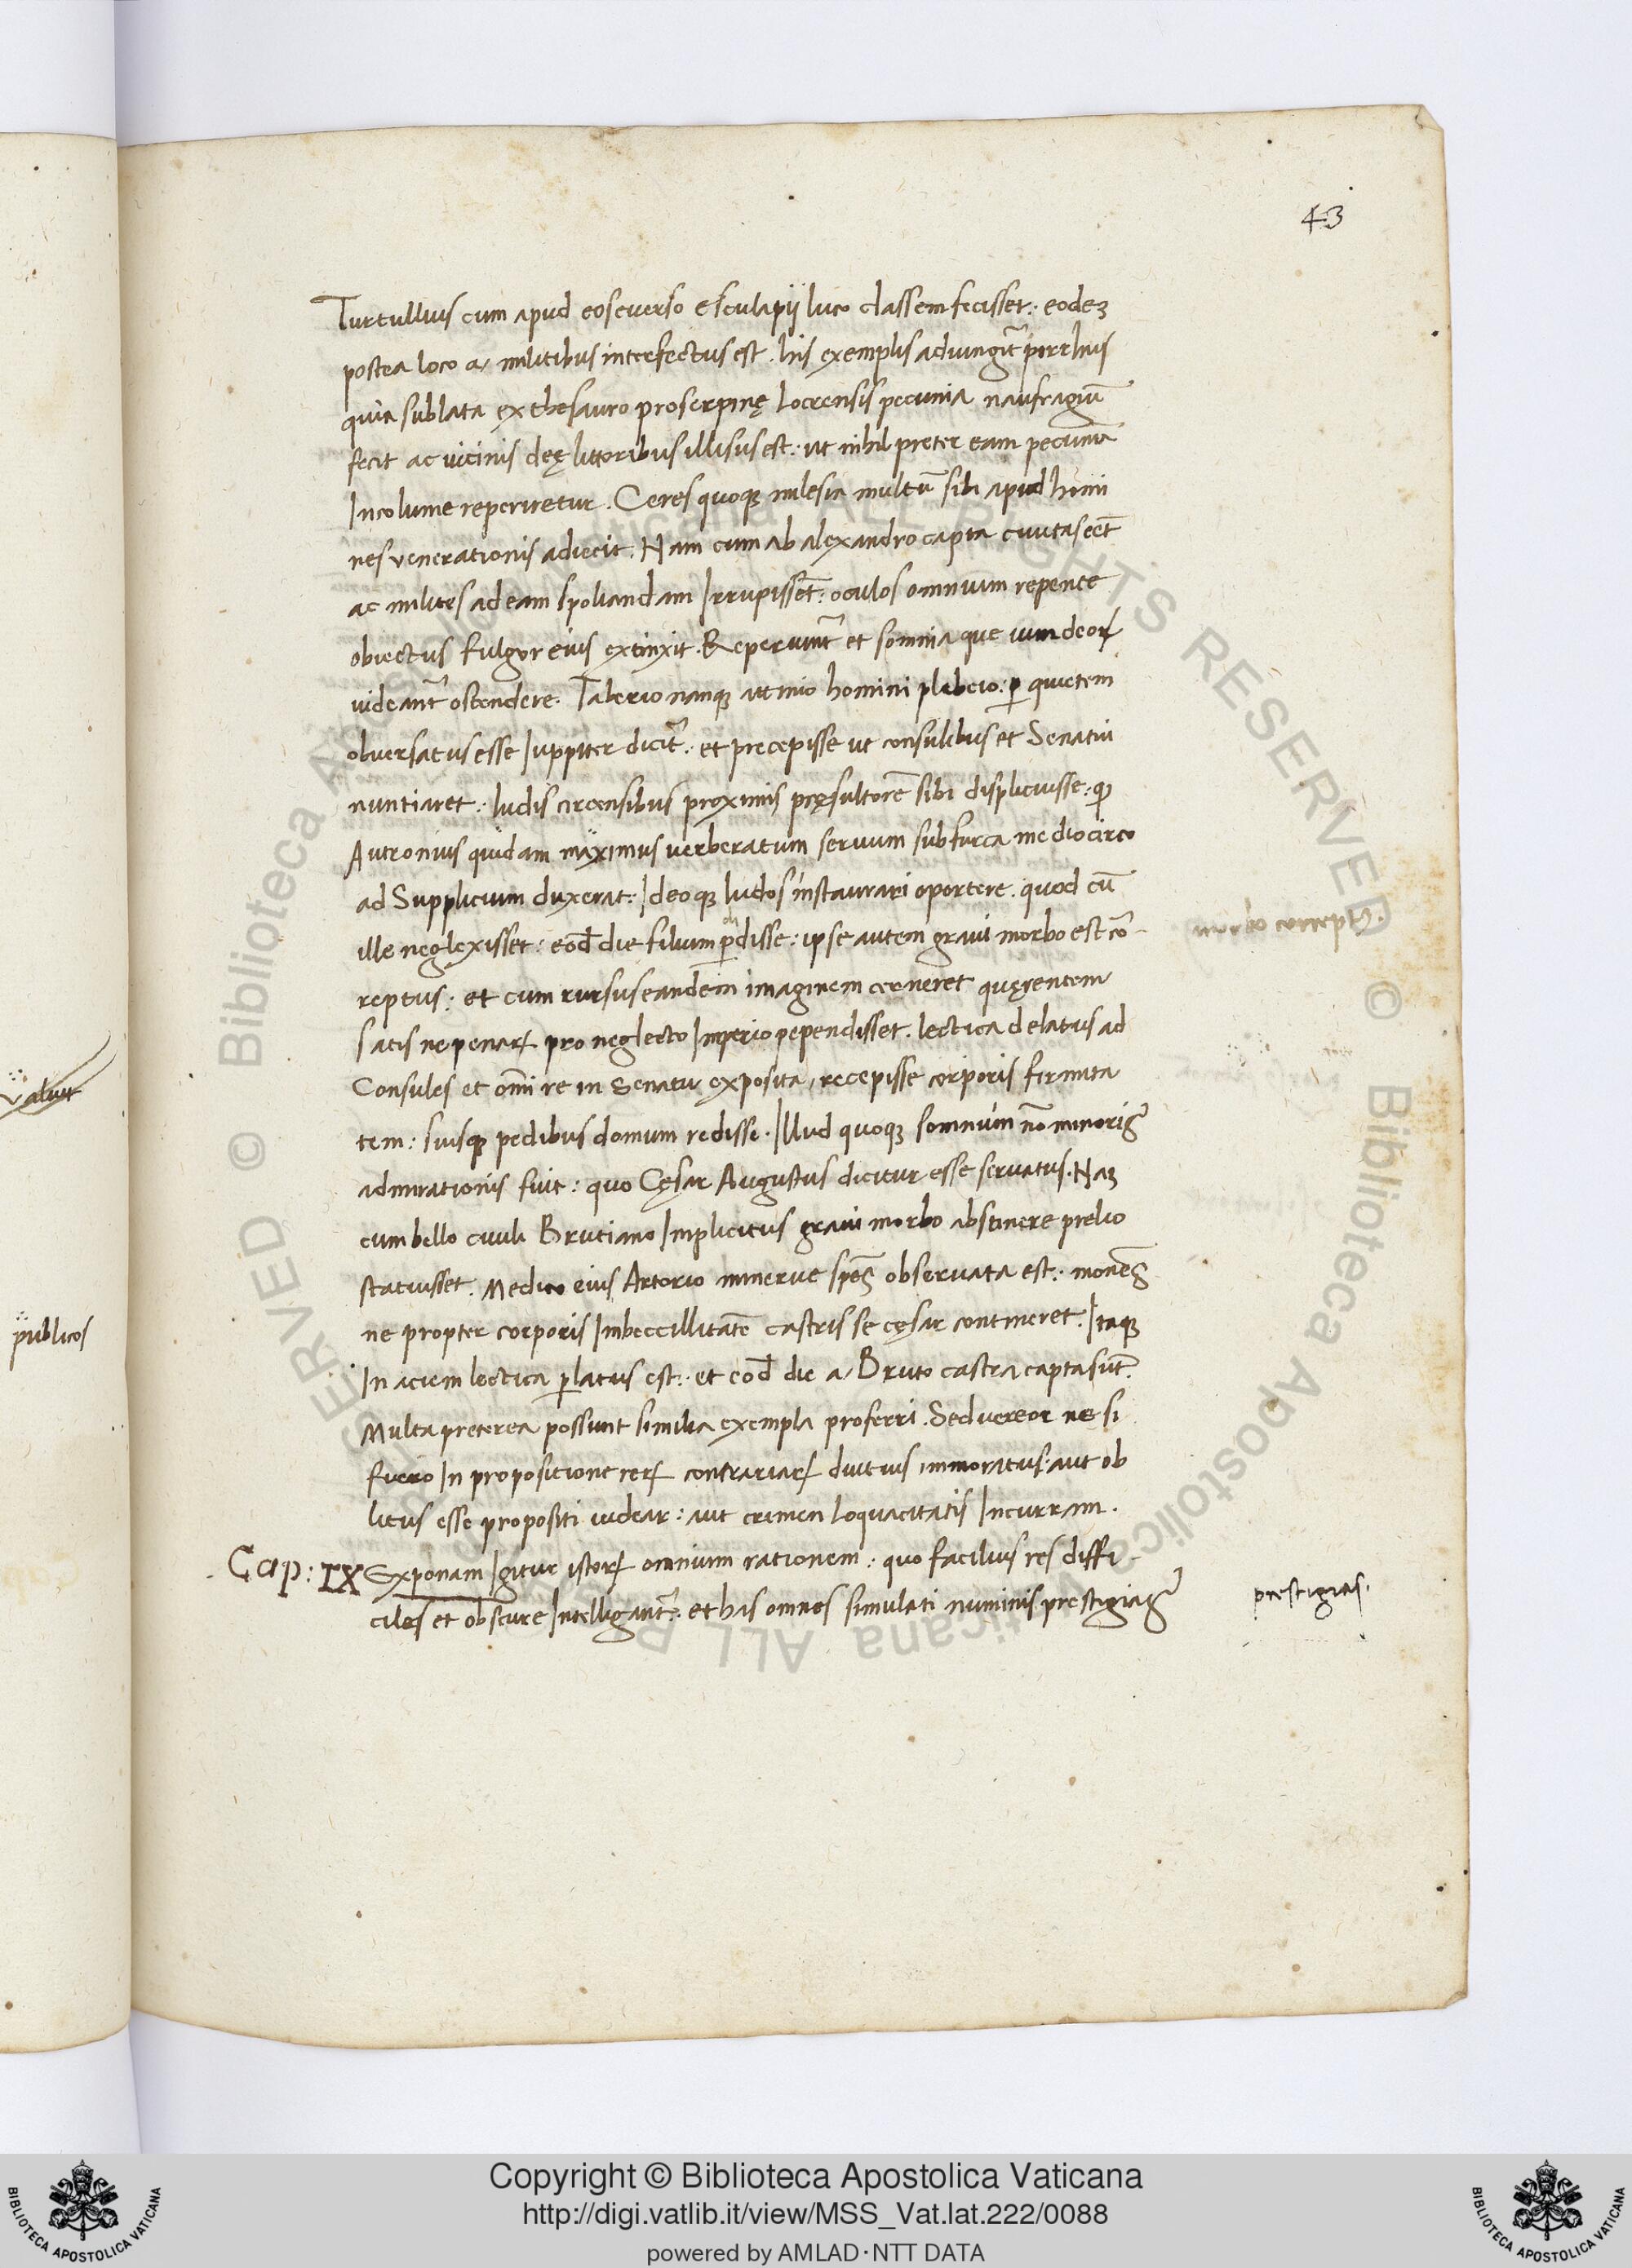 43
Turtullius cum apud eos euerso esculapij luco classem fecisset: eodeꝫ
postea loco a militibus interfectus est. his exemplis adiungit᷑ pirrhus
quia sublata ex thesauro proserpinę locrensis pecunia naufragiū
fecit ac uicinis deę littoribus illisus est: ut nihil preter eam pecuniā
Incolume reperiretur. Ceres quoqꝫ milesia multū sibi apud homi
nes venerationis adiecit. Nam cum ab alexandro capta ciuitas eēt
ac milites ad eam spoliandam Irrupissēt: oculos omnium repente
obiectus fulgor eius extinxit. Reperiunt᷑ et somnia que uim deoꝝ
uideant᷑ ostendere. Tiberio nanqꝫ attinio homini plebeio: ꝑ quietem
obuersatus esse Iuppiter dicit᷑: et precepisse ut consulibus et Senatui
nuntiaret: ludis circensibus proximis pręsultorē sibi displicuisse: ꝙ
Autronius quidam maximus uerberatum seruum sub furca medio circo
ad Supplicium duxerat: Ideoqꝫ ludos instaurari oportere. quod cū
ille neglexisset: eod̄ die filium ꝑdisse: ipse autem graui morbo est cō-
reptus: et cum rursus eandem imaginem cerneret quęrentem
satis ne penaꝝ pro neglecto Imperio pependisset. lectica delatus ad
Consules et omī re in Senatu exposita, recepisse corporis firmita
tem: suisqꝫ pedibus domum redisse. Illud quoqꝫ somnium nō minoris
admirationis fuit: quo Cęsar Augustus dicitur esse seruatus. Naꝫ
cum bello ciuili Brutiano Implicitus graui morbo abstinere prelio
statuisset. Medico eius Artorio minerue spēs obseruata est: monēs
ne propter corporis Imbeccillitatē castris se cęsar contineret. Itaqꝫ
In aciem lectica ꝑlatus est: et eod̄ die a Bruto castra capta sūt.
Multa preterea possunt similia exempla proferri. Sed uereor ne si
fuero In propositione reꝝ contrariaꝝ diutius immoratus: aut ob
litus esse propositi uidear: aut crimen loquacitatis Incurram.
Cap: IX Exponam Igitur istoꝝ omnium rationem: quo facilius res diffi-
ciles et obscure Intelligant᷑: et has omnes simulati numinis prestigias
prestigias.
valuit
publicos